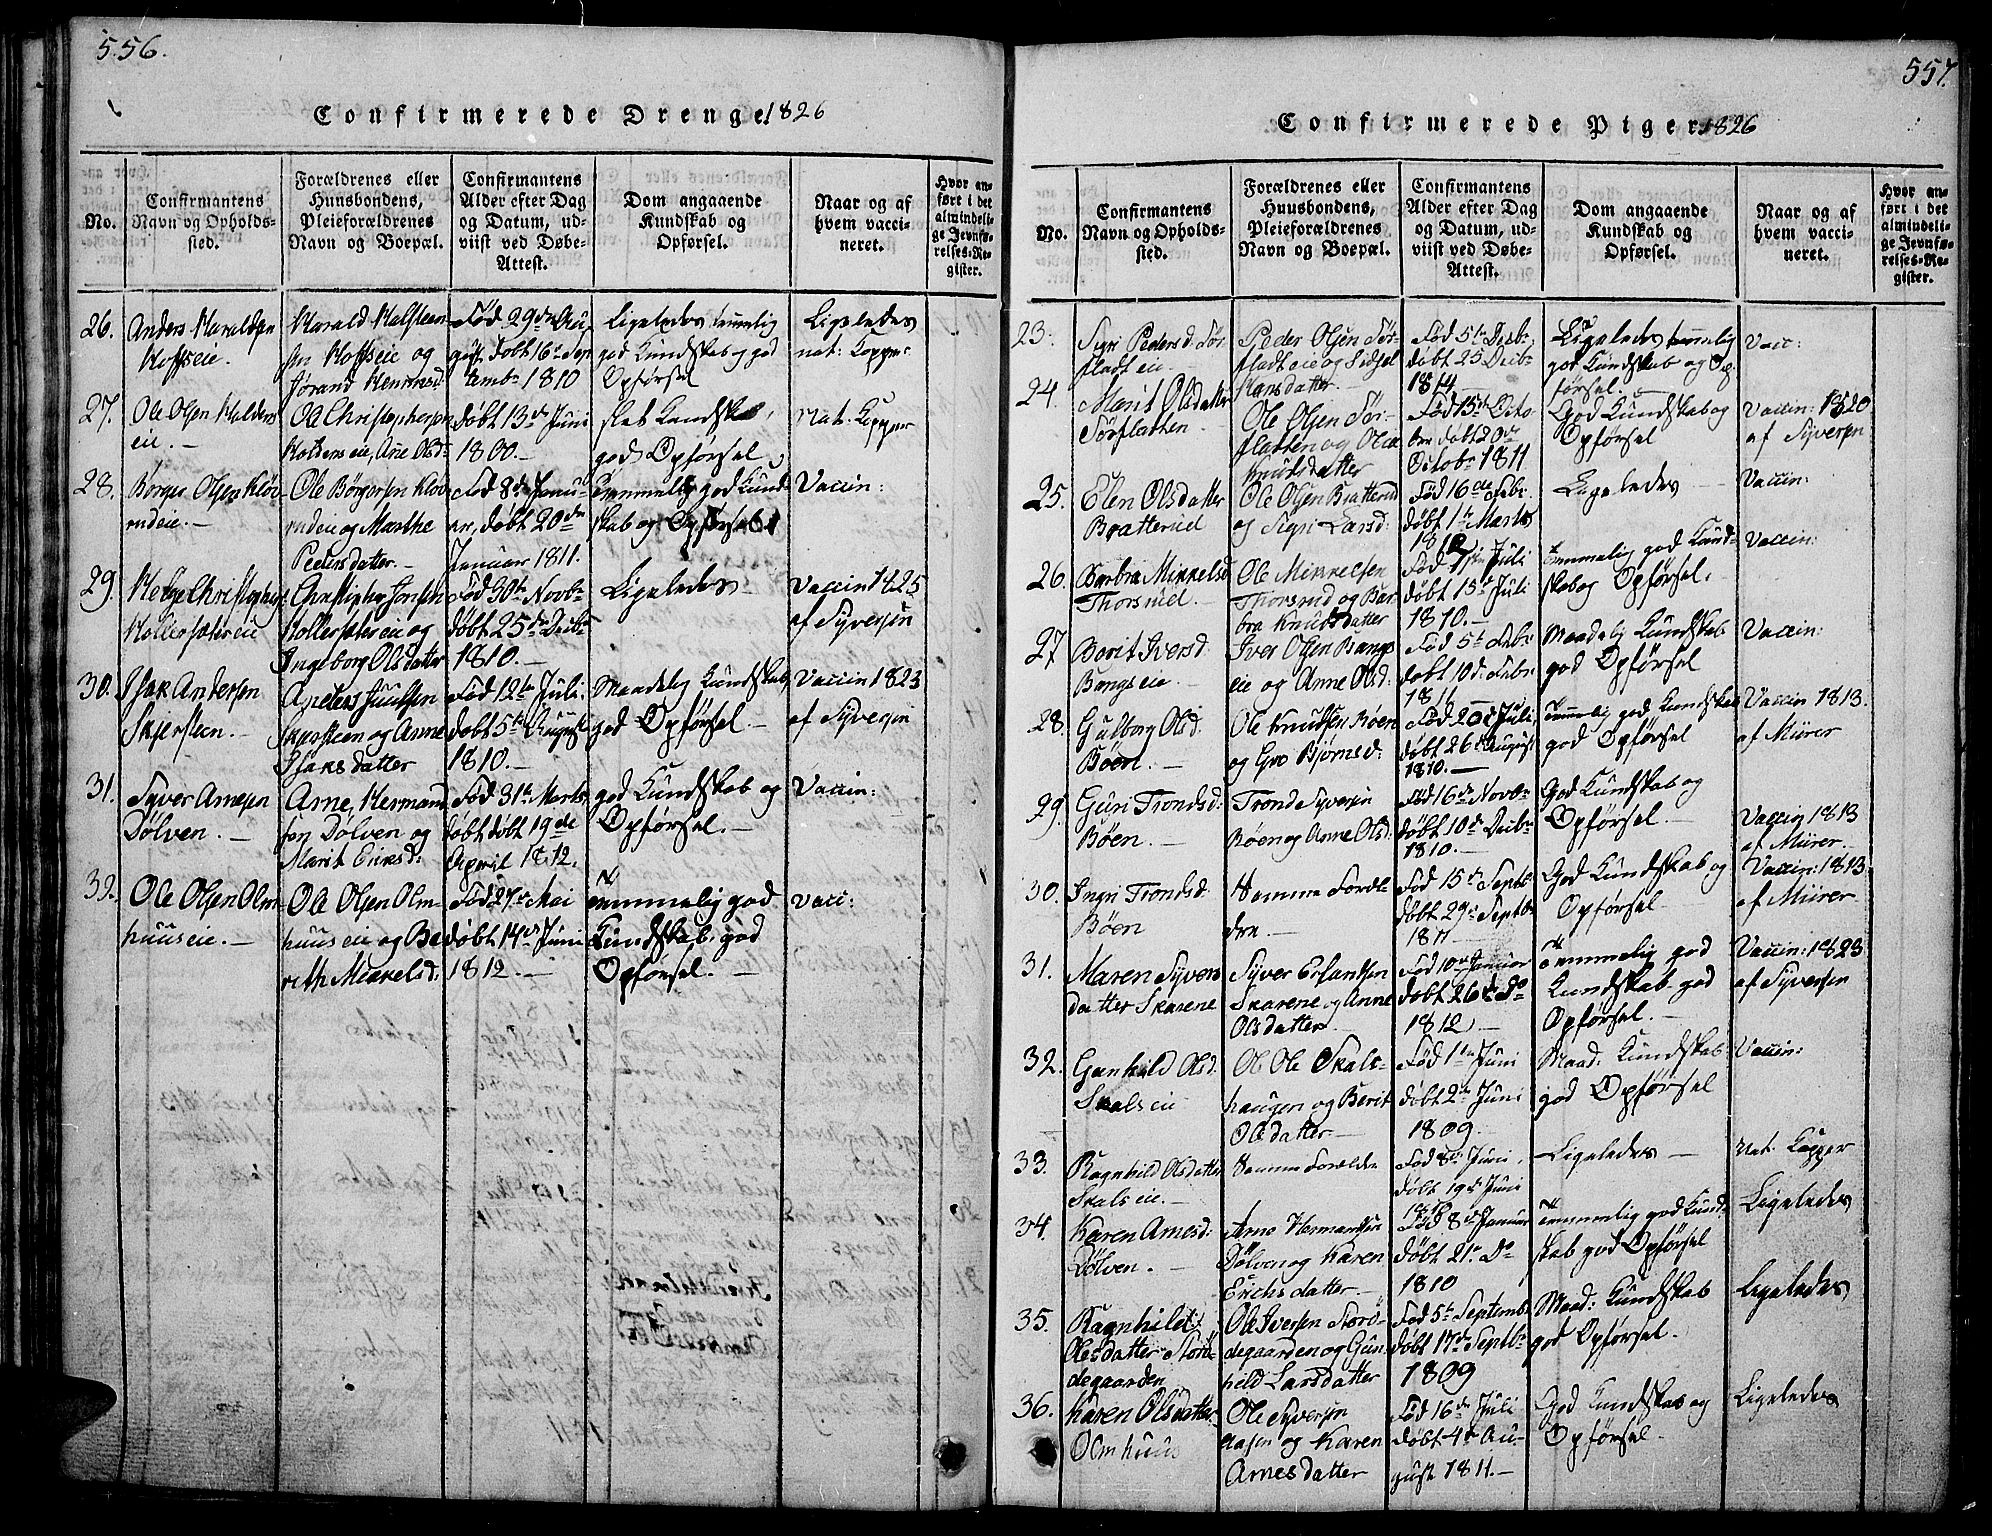 556.
Confirmerede Drenge. 1826
No.
Confirmantens
Navn og Opholds-
sted.
Forældrenes eller
Huusbondens,
Pleieforældrenes
Navn og Boepæl.
Confirmantens
Alder efter Dag
og Datum, ud-
viist ved Døbe-
Attest.
Dom angaaende
Kundskab og
Opførsel.
Naar og af
hvem vacci-
neret.
Hvor an-
ført i det
almindeli-
ge Jevnfø-
relses-Re-
gister.
26.
Anders Haraldsen
Hoffseie.
Harald Halsteen-
sen Hoffseie og
Jørand Hemmesd
Fød 29de Au-
gust, Døbt 16de Sep
tembr 1810
Ligeledes temmelig
god Kundskab og god
Opførsel
Ligeledes
nat: Kopper
27.
Ole Olsen Halders
eie. -
Ole Christophersen
Halders eie, Ane Olsd
døbt 13de Juni
1800. -
slet Kundskab,
god Opførsel
Nat. Kopper
28.
Børger Olsen Kløv-
rudeie. -
Ole Børgersen Klov-
rudeie og Marthe
Pedersdatter. -
Fød 8de Janu-
ar, døbt 20de
Januar 1811.
Temmelig god Kund-
skab og Opførsel
Vaccin:
29.
Helge Christophers
Hollersætereie
Christopher Jonsen
Hollersætereie og
Ingeborg Olsdatter
Fød 30te Novbr
døbt 25de Decbr
1810. -
Ligeledes -
Vaccin 1825
af Syversen
30.
Isak Andersen
Skjersteen. -
Anders Juulsen
Skjersteen og Anne
Isaksdatter
Fød 12te Juli
døbt 5te August
1810. -
Maadelig Kundskab,
god Opførsel. -
Vaccin 1823
af Syversen
31.
Syver Arnesen
Dølven. -
Arne Hermand-
sen Dølven og
Marit Eriksd:
Fød 31te Marts
døbt døbt 19de
April 1812.
god Kundskab og
Opførsel. -
Vaccin:
32.
Ole Olsen Olm-
huuseie. -
Ole Olsen Olm-
huuseie og Be-
rith Mikkelsd.
Fød 27de Mai
døbt 14de Juni
1812. -
Temmelig god
Kundskab, god
Opførsel. -
Vacc:
557.
Confirmerede Piger. 1826
No.
Confirmantens
Navn og Opholds-
sted.
Forældrenes eller
Huusbondens,
Pleieforældrenes
Navn og Boepæl.
Confirmantens
Alder efter Dag
og Datum, ud-
viist ved Døbe-
Attest.
Dom angaaende
Kundskab og
Opførsel.
Naar og af
hvem vacci-
neret.
Hvor an-
ført i det
almindeli-
ge Jevnfø-
relses-Re-
gister.
23.
Sigri Pedersd. Sør-
fladteie.
Peder Olsen Sør-
fladteie og Sidsel
Hansdatter. -
Fød 5te Decbr,
døbt 25 Decbr
1814. -
Ligeledes temmelig
god Kundskab og Op-
førsel. -
Vacc:
24.
Marit Olsdatter
Sørflatten.
Ole Olsen Sør-
flatten og Olea
Knudsdatter
Fød 15de Octo-
ber døbt 20de
Octobr 1811
God Kundskab og
Opførsel
Vaccin: 1820
af Syversen
25.
Elen Olsdatter
Bratterud
Ole Olsen Bratterud
og Sigri Larsd:
Fød 16de Febr.
døbt 1te Marts
1812
Ligeledes -
Vaccin:
26.
Barbra Mikkelsd
Thorsrud. -
Ole Mikkelsen
Thorsrud og Bar-
bra Knudsdatter
Fød 1ste Juli
døbt 15de Juli
1810. -
Temmelig god Kund-
skab og Opførsel.
Vaccin:
27
Berit Iversd.
Bangseie. -
Iver Olsen Bangs
eie og Anne Olsd:
Fød 5te Febr
døbt 10de Febr
1811
Maadelig Kundskab
god Opførsel
Vaccin:
28.
Gulborg Olsd.
Bøen. -
Ole Knudsen Bøen
og Gro Bjørnsd:
Fød 20de Juli,
døbt 26de August
1810. -
Temmelig god Kundskab
god Opførsel
Vaccin 1813.
af Mürer
29.
Guri Trondsd:
Bøen. -
Trond Syversen
Bøen og Anne Olsd:
Fød 16de Novbr
døbt 10de Decbr
1810. -
God Kundskab og
Opførsel. -
Vaccin 1813
af Mürer. -
30.
Ingri Trondsd.
Bøen
Samme Foræl-
dre. -
Fød 15de Septbr
døbt 29de Septbr
1811 -
God Kundskab og
Opførsel -
Vaccin: 1813
af Mürer
31.
Maren Syvers
datter Skarene
Syver Erlandsen
Skarene og Anne
Olsdatter -
Fød 10de Januar
døbt 26de Do
1812. -
Temmelig god
Kundskab god
Opførsel. -
Vaccin: 1823
af Syversen
32.
Gunhild Olsd.
Skalseie
Ol Ole Skals-
haugen og Berit
Olsdatter -
Fød 1te Juni
døbt 2de Juni
1809. -
Maad: Kundskab
god Opførsel
Vaccin:
33.
Ragnhild Olsdatter
Skalseie. -
Samme Forældre
Fød 8de Juni,
døbt 19de Juni
-Ligeledes -
Nat. Kopper
34.
Karen Arnesd:
Dølven. -
Arne Hermandsen
Dølven og Karen
Erichsdatter -
Fød 8de Januar
døbt 21de Do
1810
Temmelig god Kund-
skab god Opførsel
Ligeledes
35.
Ragnhild
Olesdatter Stør-
degaarden
Ole Iversen Stør-
degaarden og Gun-
hild Larsdatter
Fød 5te Septemb
døbt 17de Septbr
1809
Maad: Kundskab
god Opførsel.
Ligeledes
36.
Karen Olsdatter
Olmhuus
Ole Syversen
Aasen og Karen
Arnesdatter
Fød 16de Juli
døbt 4de Au-
gust 1811. -
God Kundskab og
Opførsel. -
Ligeledes